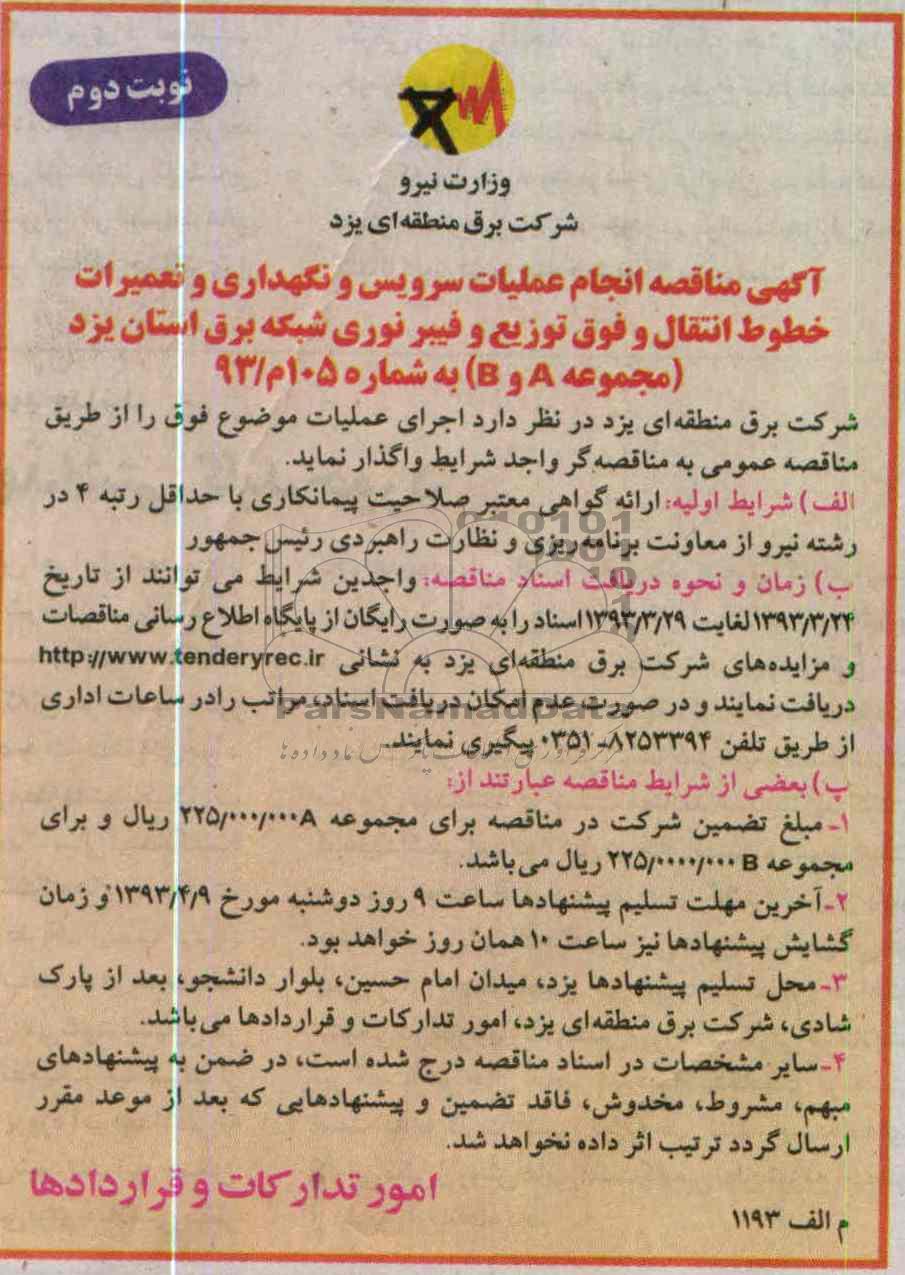 نوبت دوم
وزارت نیرو
شرکت برق منطقه‌ای یزد
آگهی مناقصه انجام عملیات سرویس و نگهداری و تعمیرات
خطوط انتقال و فوق توزیع و فیبر نوری شبکه برق استان یزد
(مجموعه A و B) به شماره ۱۰۵م/۹۳
شرکت برق منطقه‌ای یزد در نظر دارد اجرای عملیات موضوع فوق را از طریق
مناقصه عمومی به مناقصه‌گر واجد شرایط واگذار نماید.
الف) شرایط اولیه: ارائه گواهی معتبر صلاحیت پیمانکاری با حداقل رتبه ۴ در
رشته نیرو از معاونت برنامه‌ریزی و نظارت راهبردی رئیس‌جمهور
ب) زمان و نحوه دریافت اسناد مناقصه: واجدین شرایط می توانند از تاریخ
۱۳۹۳/۳/۲۴ لغایت ۱۳۹۳/۳/۲۹ اسناد را به صورت رایگان از پایگاه اطلاع رسانی مناقصات
و مزایده‌های شرکت برق منطقه‌ای یزد به نشانی http://www.tenderyrec.ir
دریافت نمایند و در صورت عدم امکان دریافت اسناد، مراتب را در ساعات اداری
از طریق تلفن ۸۲۵۳۳۹۴-۰۳۵۱ پیگیری نمایند.
ParsNamadData
پ) بعضی از شرایط مناقصه عبارتند از:
۱- مبلغ تضمین شرکت در مناقصه برای مجموعه A ۲۲۵/۰۰۰/۰۰۰ ریال و برای
مجموعه B ۲۲۵/۰۰۰۰/۰۰۰ ریال می‌باشد.
۲- آخرین مهلت تسلیم پیشنهادها ساعت ۹ روز دوشنبه مورخ ۱۳۹۳/۴/۹ و زمان
گشایش پیشنهادها نیز ساعت ۱۰ همان روز خواهد بود.
۳- محل تسلیم پیشنهادها یزد، میدان امام حسین، بلوار دانشجو، بعد از پارک
شادی، شرکت برق منطقه‌ای یزد، امور تدارکات و قراردادها می‌باشد.
۴- سایر مشخصات در اسناد مناقصه درج شده است، در ضمن به پیشنهادهای
مبهم، مشروط، مخدوش، فاقد تضمین و پیشنهادهایی که بعد از موعد مقرر
ارسال گردد ترتیب اثر داده نخواهد شد.
امور تدارکات و قراردادها
م الف ۱۱۹۳